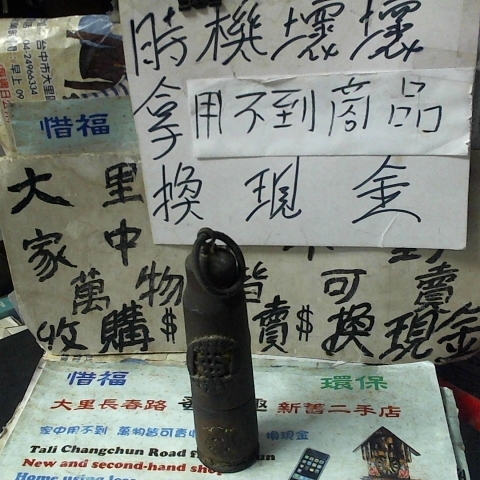 時機壞壞
拿用不到商品
換現金
台中市大里
惜福
大里
家中
萬物皆可賣
收購$賣$換現金
惜福 環保
大里長春路 新舊二手店
家中用不到 萬物皆可賣
換現金
Tali Changchun Road
New and second-hand shop
Home using